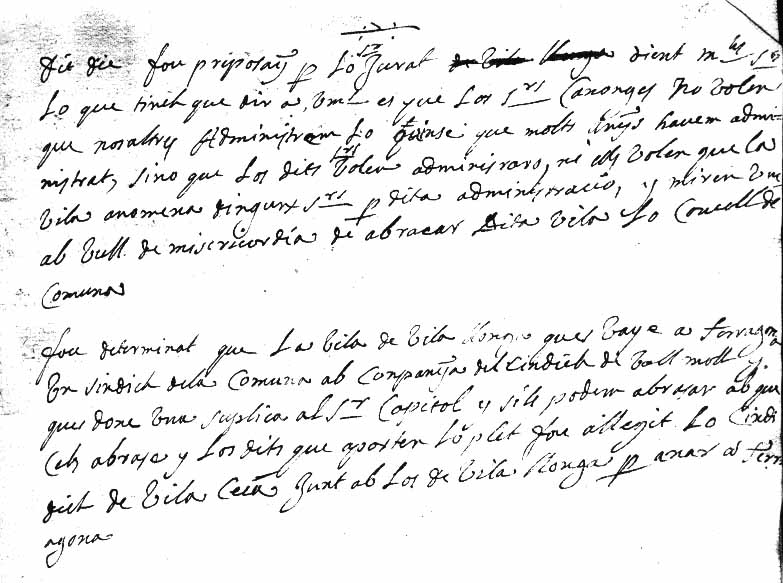 Dit die fou priposat p Lo Sr Jurat de Vila llonga dient mlts Srs
Lo que tinch que dir a Vms es que Los Srs Canonges No volen
que nosaltres Administrem Lo que molts Anys havem admi-
nistrat, sino que Los dits Srs volen administraro, ni ells volen que la
Vila anomena dingun Srs p dita administracio, y miren Vms
ab Vull de misericordia de abracar Dita Vila Lo Concell de
Comuna
Fou determinat que La Vila de Vila llonga ques Vaye a Terragona
Un Sindich dela Comuna ab Conpanya del Cindich de Vall moll y
ques done Una suplica al Sr Capitol y sils podem abrasar ab que
Cels abrase y Los dits que aporten Lo plet fou allegit Lo Cindi
dich de Vila Ceca Junt ab Los de Vila llonga p anar a Terr
agona